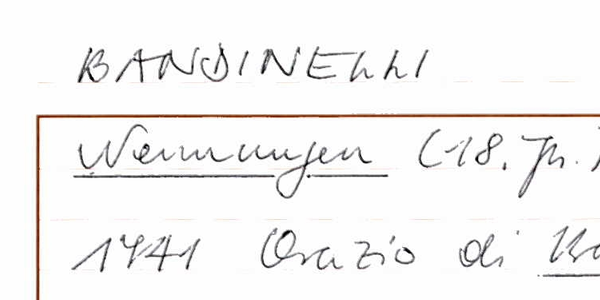 BANDINELLI
Nennungen (18. Jh.)
1741 Orazio di Ba